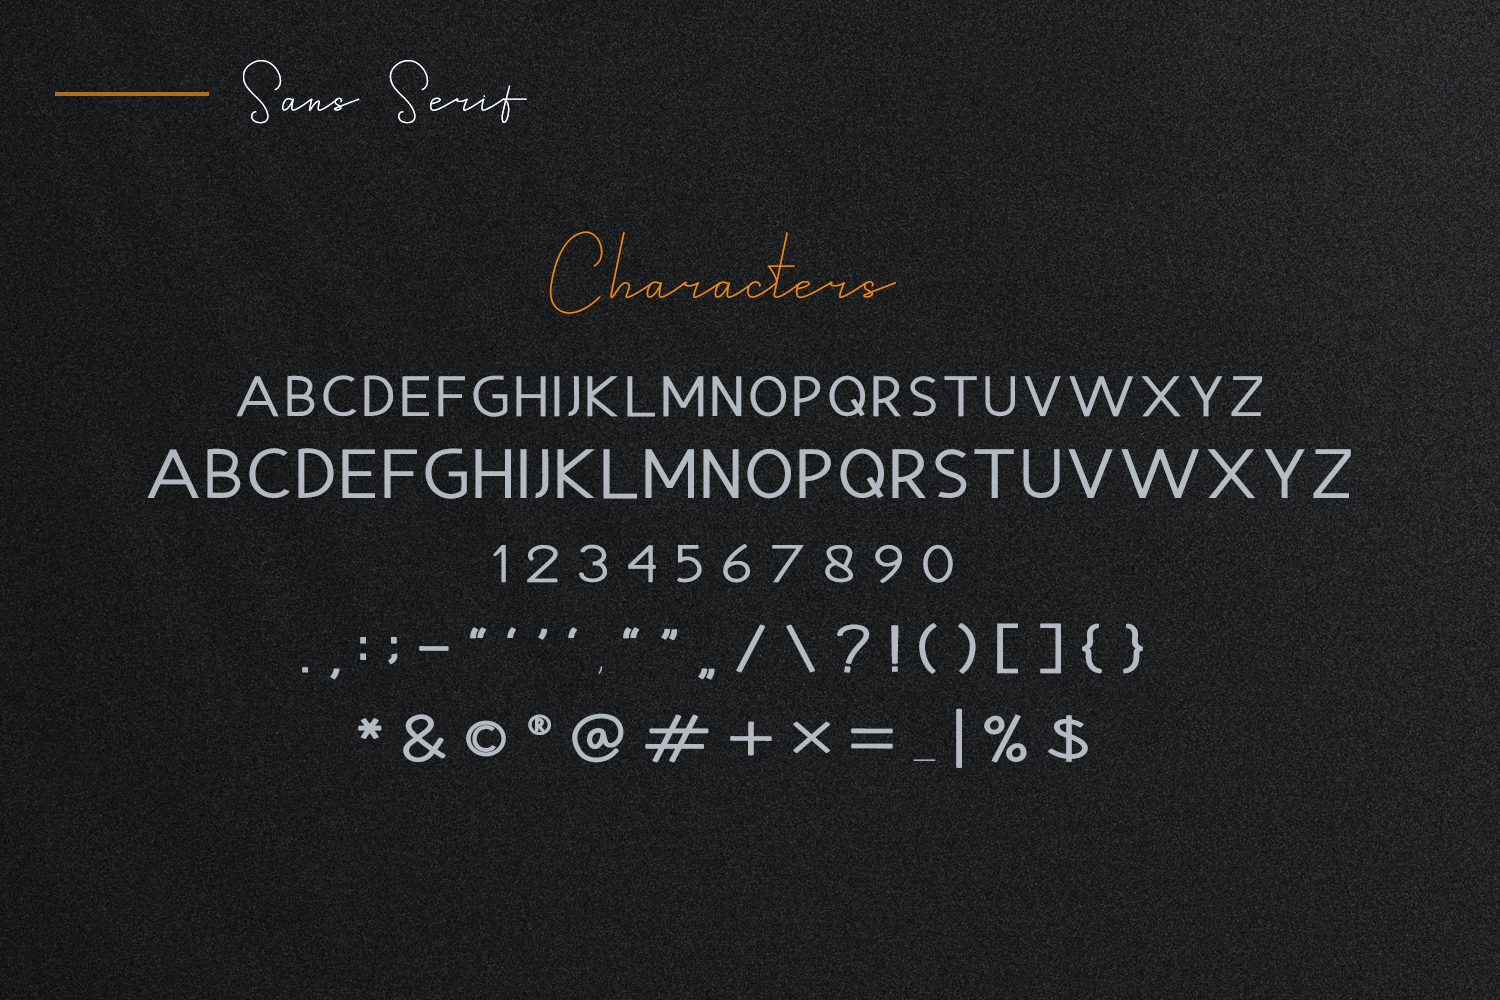 Sans Serif
Characters
ABCDEFGHIJKLMNOPQRSTUVWXYZ
ABCDEFGHIJKLMNOPQRSTUVWXYZ
1 2 3 4 5 6 7 8 9 0
. , : ; – “ ‘ ’ ‘ ‚ “ ” „ / \ ? ! ( ) [ ] { }
* & © ® @ # + × = _ | % $